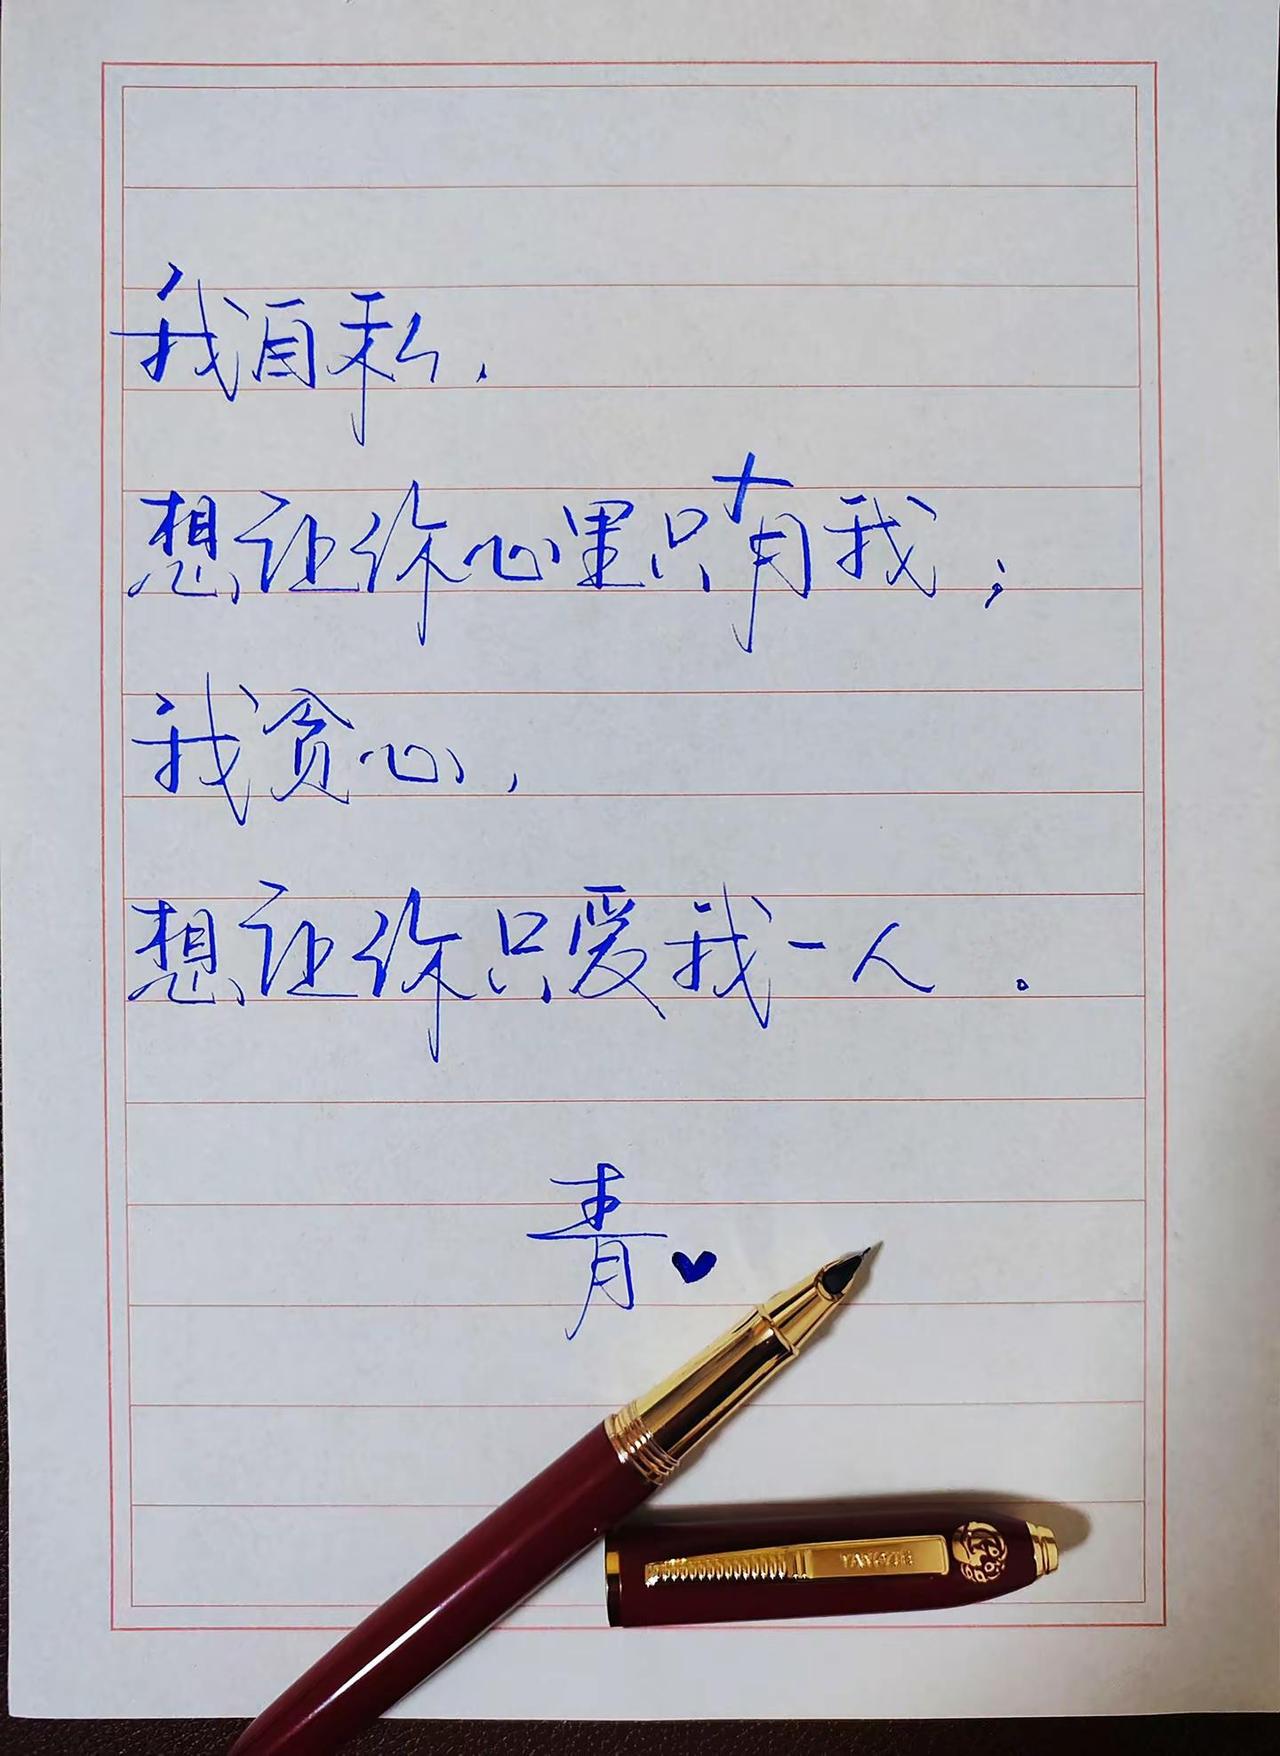 我自私,
想让你心里只有我;
我贪心,
想让你只爱我一人。
青